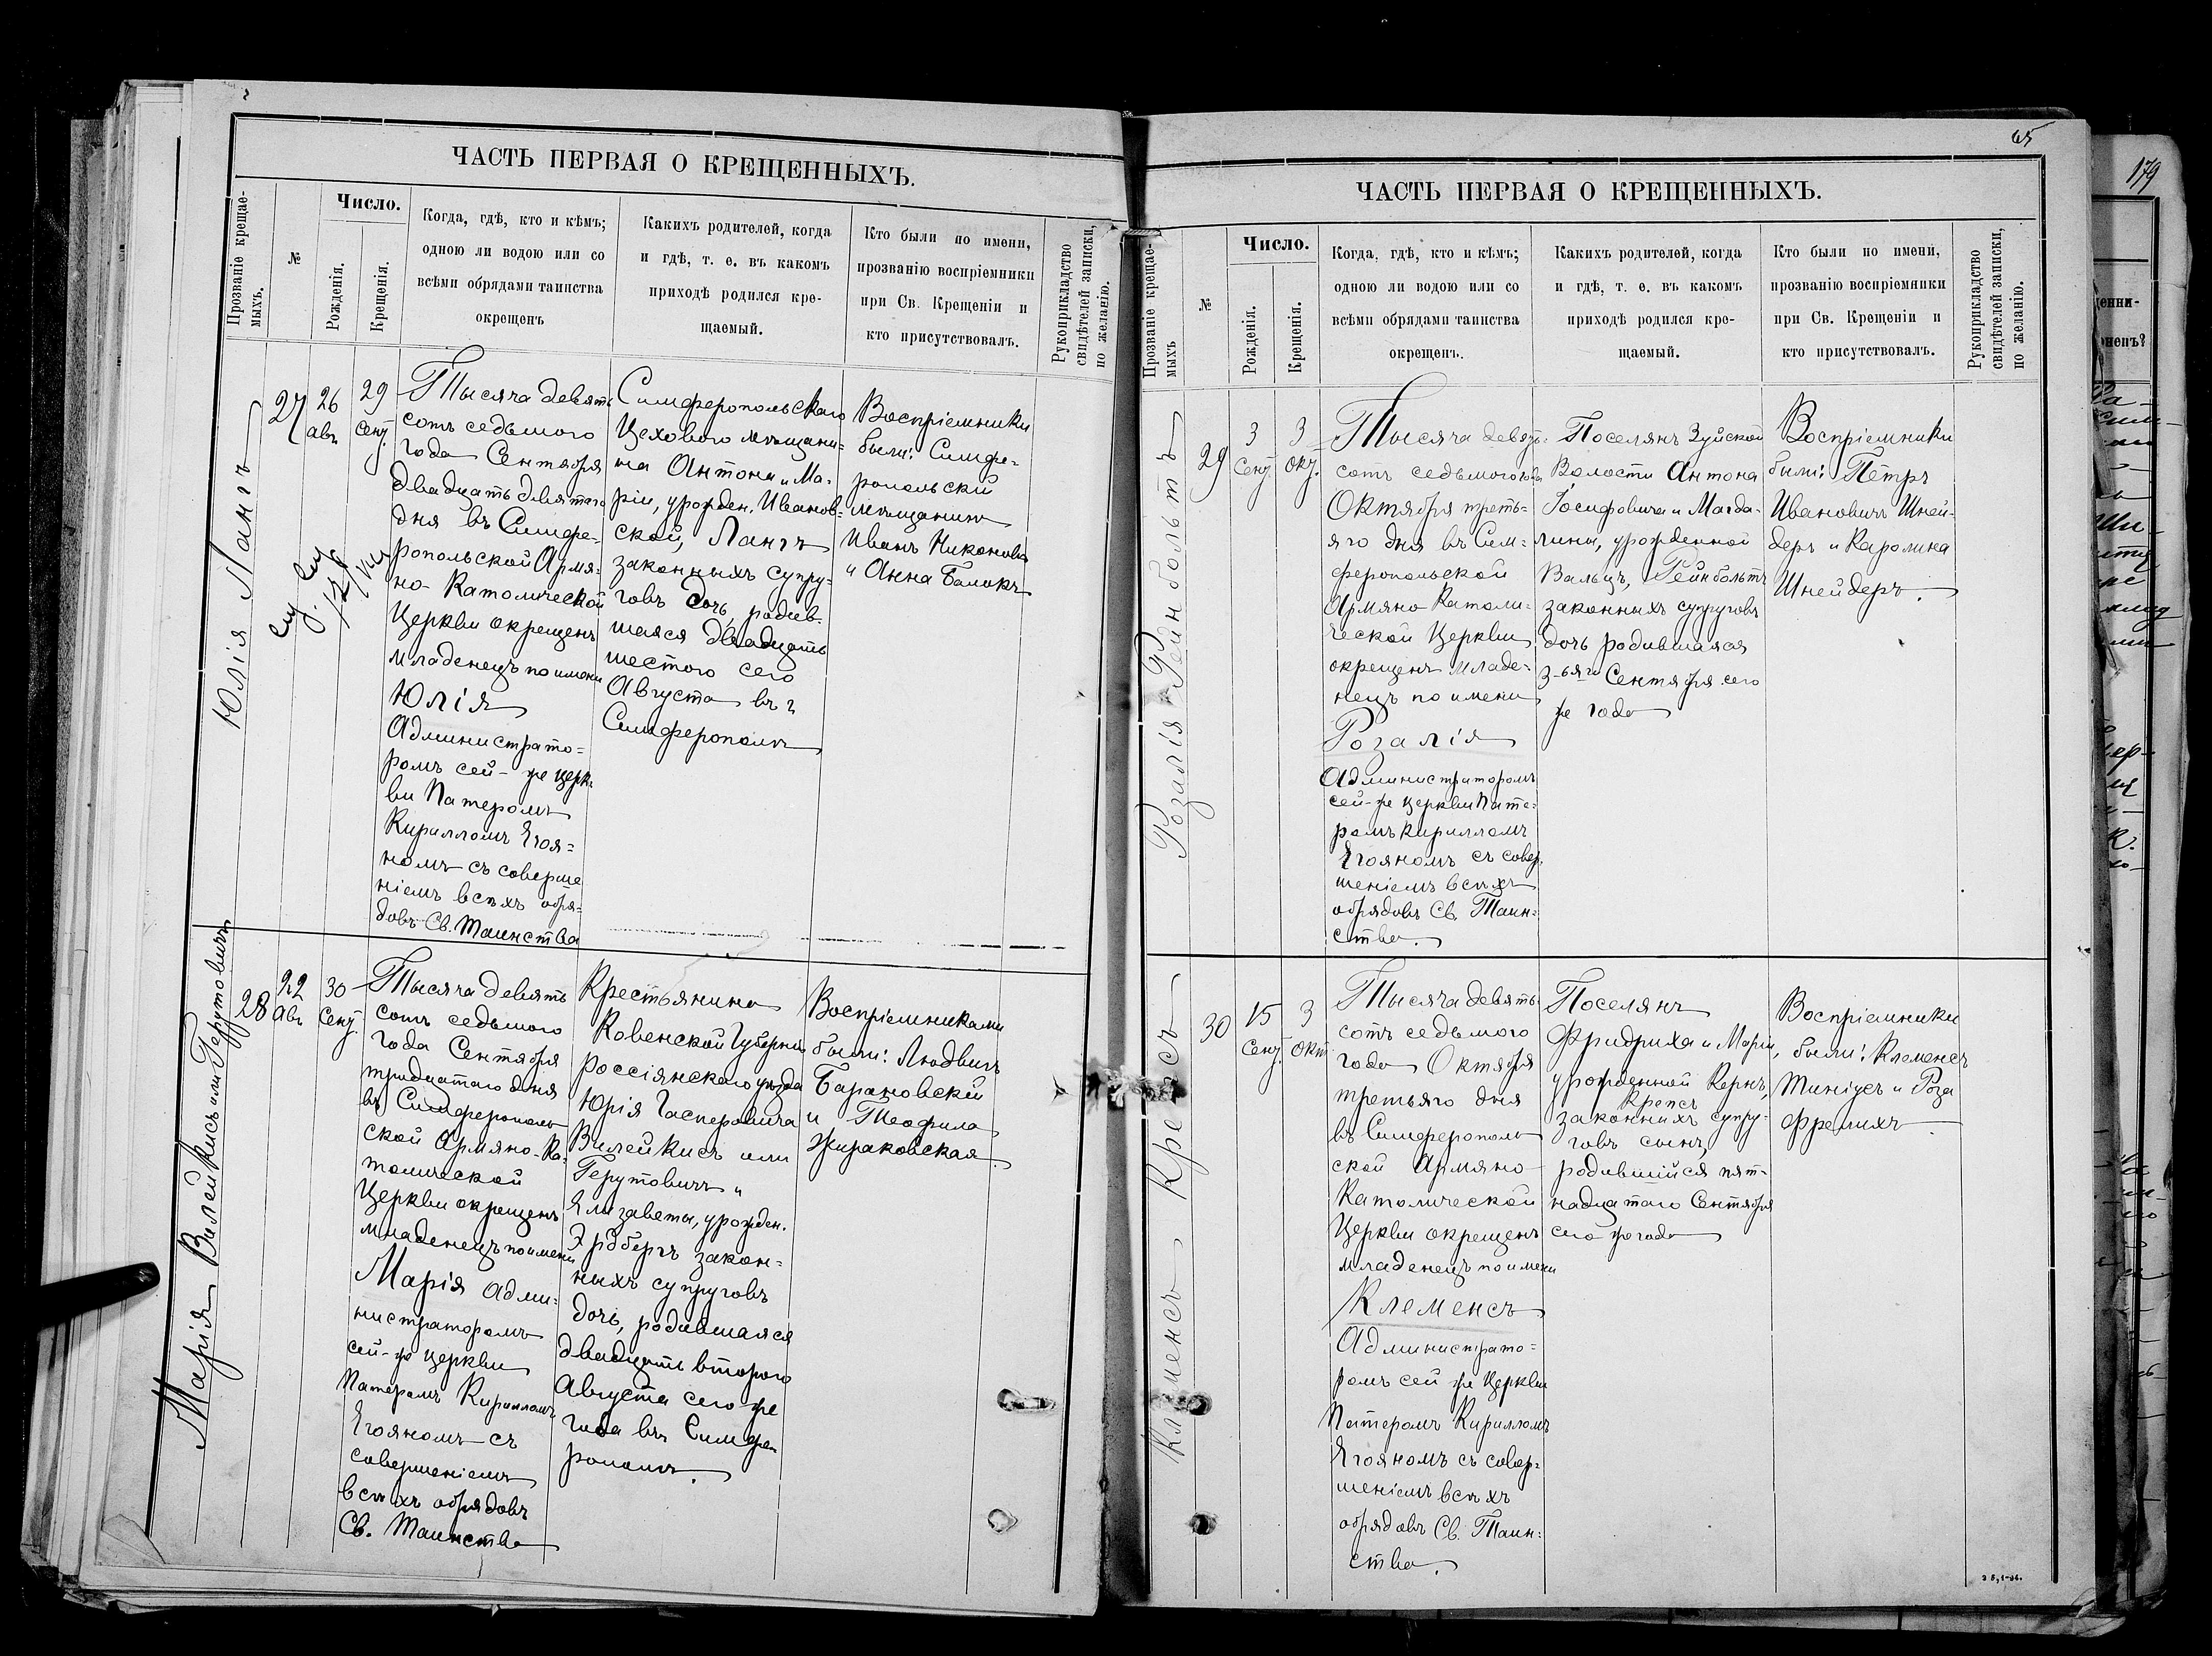 ЧАСТЬ ПЕРВАЯ О КРЕЩЕННЫХЪ.
Прозваніе крещае-
мыхъ.
№
Число.
Рожденія.
Крещенія.
Когда, гдѣ, кто и кѣмъ;
одною ли водою или со
всѣми обрядами таинства
окрещенъ
Какихъ родителей, когда
и гдѣ, т. е. въ какомъ
приходѣ родился кре-
щаемый.
Кто были по имени,
прозванію воспріемники
при Св. Крещеніи и
кто присутствовалъ.
Рукоприкладство
свидѣтелей записки,
по желанію.
Юлія Лангъ
27
26
авг.
29
Сент.
Тысяча девять
сотъ седьмого
года Сентября
двадцать девятаго
дня въ Симфе-
ропольской Армя-
но-Католической
Церкви окрещенъ
младенецъ по имени
Юлія
Администрато=
ромъ сей-же церк-
ви Патеромъ
Кирилломъ Егоя=
номъ съ соверше
ніемъ всѣхъ обря=
довъ Св. Таинства
Симферопольскаго
Цехового мѣщани-
на Антона и Ма-
ріи, урожден. Иванов=
ской, Лангъ
законныхъ супру-
говъ дочь, родив-
шаяся двадцать
шестого сего
Августа въ г.
Симферополѣ
Воспріемники
были: Симфе-
ропольскій
мѣщанинъ
Иванъ Никоновъ
и Анна Балокъ
Марія Вилейкисъ или Герутовичъ
28
22
авг.
30
Сент.
Тысяча девять
сотъ седьмого
года Сентября
тридцатаго дня
въ Симферополь
ской Армяно-Ка-
толической
Церкви окрещенъ
младенецъ по имени
Марія Адми-
нистраторомъ
сей-же церкви
Патеромъ Кирилломъ
Егояномъ съ
совершеніемъ
всѣхъ обрядовъ
Св. Таинства
Крестьянина
Ковенской Губерніи
Россіянскаго уѣзда
Юрія Гасперовича
Вилейкисъ или
Герутовичъ и
Елизаветы, урожден.
Эрдбергъ закон=
ныхъ супруговъ
дочь, родившаяся
двадцать второго
Августа сего же
года въ Симфе-
рополѣ.
Воспріемниками
были: Людвигъ
Барановскій
и Теофила
Жираковская.
65
ЧАСТЬ ПЕРВАЯ О КРЕЩЕННЫХЪ.
Прозваніе крещае-
мыхъ
№
Число.
Рожденія.
Крещенія.
Когда, гдѣ, кто и кѣмъ;
одною ли водою или со
всѣми обрядами таинства
окрещенъ.
Какихъ родителей, когда
и гдѣ, т. е. въ какомъ
приходѣ родился кре-
щаемый.
Кто были по имени,
прозванію воспріемники
при Св. Крещеніи и
кто присутствовалъ.
Рукоприкладство
свидѣтелей записки,
по желанію.
Розалія Рейнбольтъ
29
3
Сент.
3
Окт.
Тысяча девять-
сотъ седьмого года
Октября треть=
яго дня въ Сим=
феропольской
Армяно Католи-
ческой Церкви
окрещенъ младе-
нецъ по имени
Розалія
Администраторомъ
сей-же церкви Пате-
ромъ Кирилломъ
Егояномъ съ совер-
шеніемъ всѣхъ
обрядовъ Св. Таин=
ства.
Поселянъ Зуйской
Волости Антона
Іосифовича и Магда-
лины, урожденной
Вальцъ, Рейнбольтъ
законныхъ супруговъ
дочь родившаяся
3-ьяго Сентября сего
же года
Воспріемники
были: Петръ
Ивановичъ Шней-
деръ и Каролина
Шнейдеръ.
Клеменсъ Крепсъ
30
15
Сент.
3
Окт.
Тысяча девять
сотъ седьмого
года Октября
третьяго дня
въ Симферополь
ской Армяно
Католической
Церкви окрещенъ
младенецъ по имени
Клеменсъ
Администрато=
ромъ сей же Церкви
Патеромъ Кирилломъ
Егояномъ съ совер=
шеніемъ всѣхъ
обрядовъ Св. Таин=
ства.
Поселянъ
Фридриха и Маріи,
урожденной Кернъ,
Крепсъ
законныхъ супру-
говъ сынъ,
родившійся пят-
надцатаго Сентября
сего же года
Воспріемники
были: Клеменсъ
Тиніусъ и Роза
Фрелихъ.
179